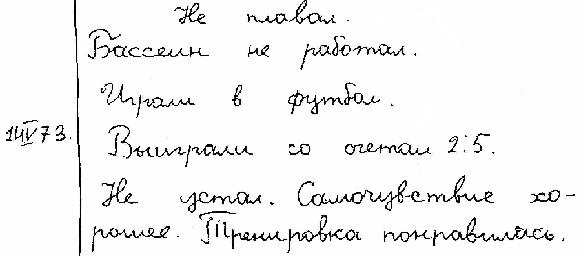 Не плавал.
Бассеин не работал.
Играли в футбол.
14 IV 73. Выиграли со счетом 2:5.
Не устал. Самочувствие хо-
рошее. Тренировка понравилась.